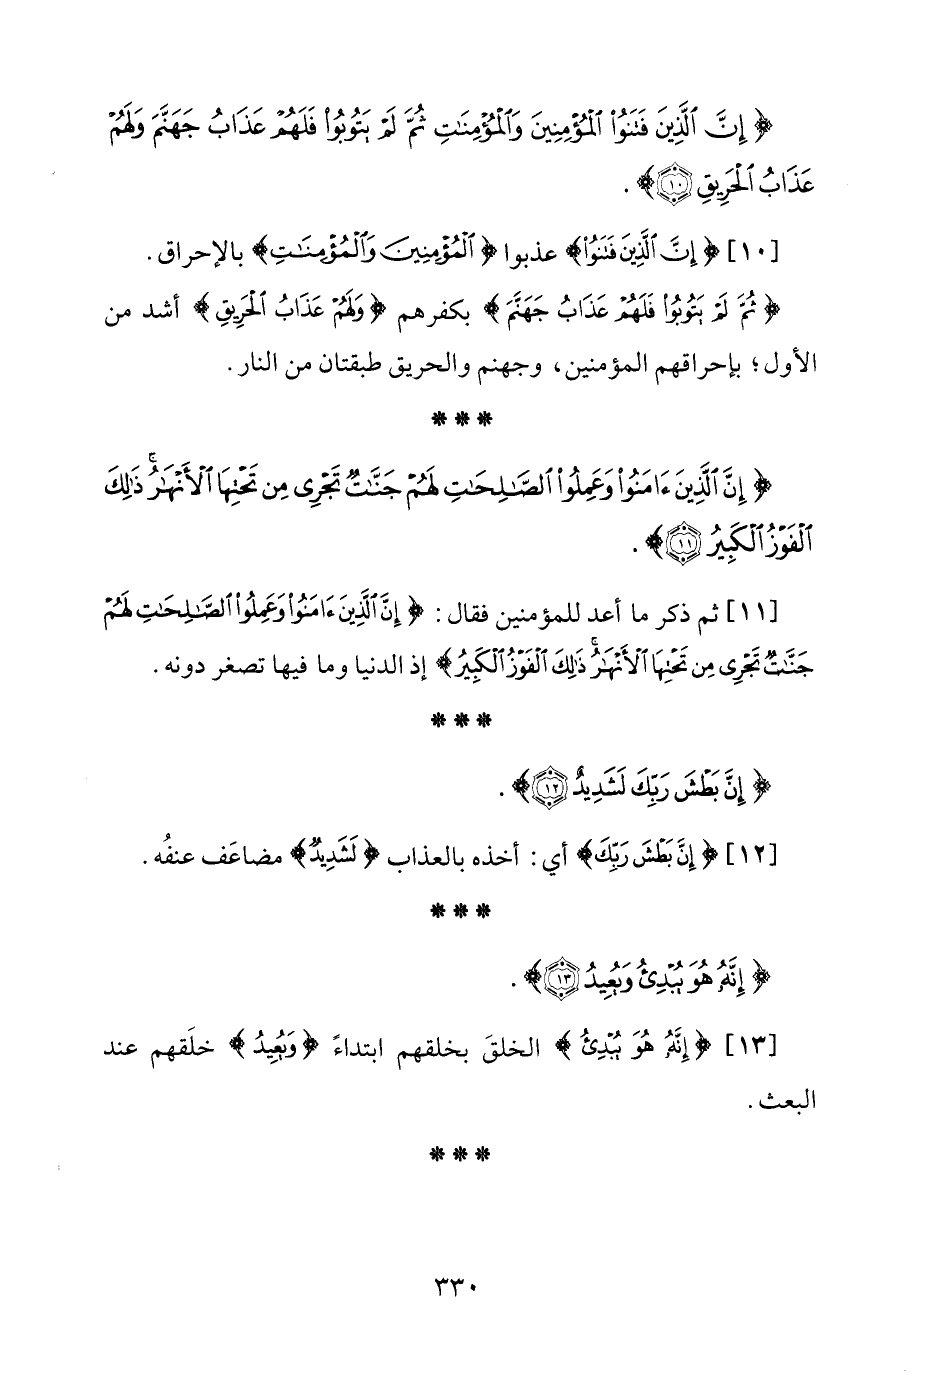 ﴿إِنَّ ٱلَّذِينَ فَتَنُوا۟ ٱلْمُؤْمِنِينَ وَٱلْمُؤْمِنَٰتِ ثُمَّ لَمْ يَتُوبُوا۟ فَلَهُمْ عَذَابُ جَهَنَّمَ وَلَهُمْ
عَذَابُ ٱلْحَرِيقِ ١٠﴾ .
[١٠] ﴿إِنَّ ٱلَّذِينَ فَتَنُوا۟﴾ عذبوا ﴿ٱلْمُؤْمِنِينَ وَٱلْمُؤْمِنَٰتِ﴾ بالإحراق .
﴿ثُمَّ لَمْ يَتُوبُوا۟ فَلَهُمْ عَذَابُ جَهَنَّمَ﴾ بكفرهم ﴿وَلَهُمْ عَذَابُ ٱلْحَرِيقِ﴾ أشد من
الأول؛ بإحراقهم المؤمنين، وجهنم والحريق طبقتان من النار .
* * *
﴿إِنَّ ٱلَّذِينَ ءَامَنُوا۟ وَعَمِلُوا۟ ٱلصَّٰلِحَٰتِ لَهُمْ جَنَّٰتٌ تَجْرِى مِن تَحْتِهَا ٱلْأَنْهَٰرُ ۚ ذَٰلِكَ
ٱلْفَوْزُ ٱلْكَبِيرُ ١١﴾ .
[١١] ثم ذكر ما أعد للمؤمنين فقال: ﴿إِنَّ ٱلَّذِينَ ءَامَنُوا۟ وَعَمِلُوا۟ ٱلصَّٰلِحَٰتِ لَهُمْ
جَنَّٰتٌ تَجْرِى مِن تَحْتِهَا ٱلْأَنْهَٰرُ ۚ ذَٰلِكَ ٱلْفَوْزُ ٱلْكَبِيرُ﴾ إذ الدنيا وما فيها تصغر دونه .
* * *
﴿إِنَّ بَطْشَ رَبِّكَ لَشَدِيدٌ ١٢﴾ .
[١٢] ﴿إِنَّ بَطْشَ رَبِّكَ﴾ أي: أخذه بالعذاب ﴿لَشَدِيدٌ﴾ مضاعَف عنفُه .
* * *
﴿إِنَّهُۥ هُوَ يُبْدِئُ وَيُعِيدُ ١٣﴾ .
[١٣] ﴿إِنَّهُۥ هُوَ يُبْدِئُ﴾ الخلقَ بخلقهم ابتداءً ﴿وَيُعِيدُ﴾ خلَقهم عند
البعث .
* * *
٣٣٠